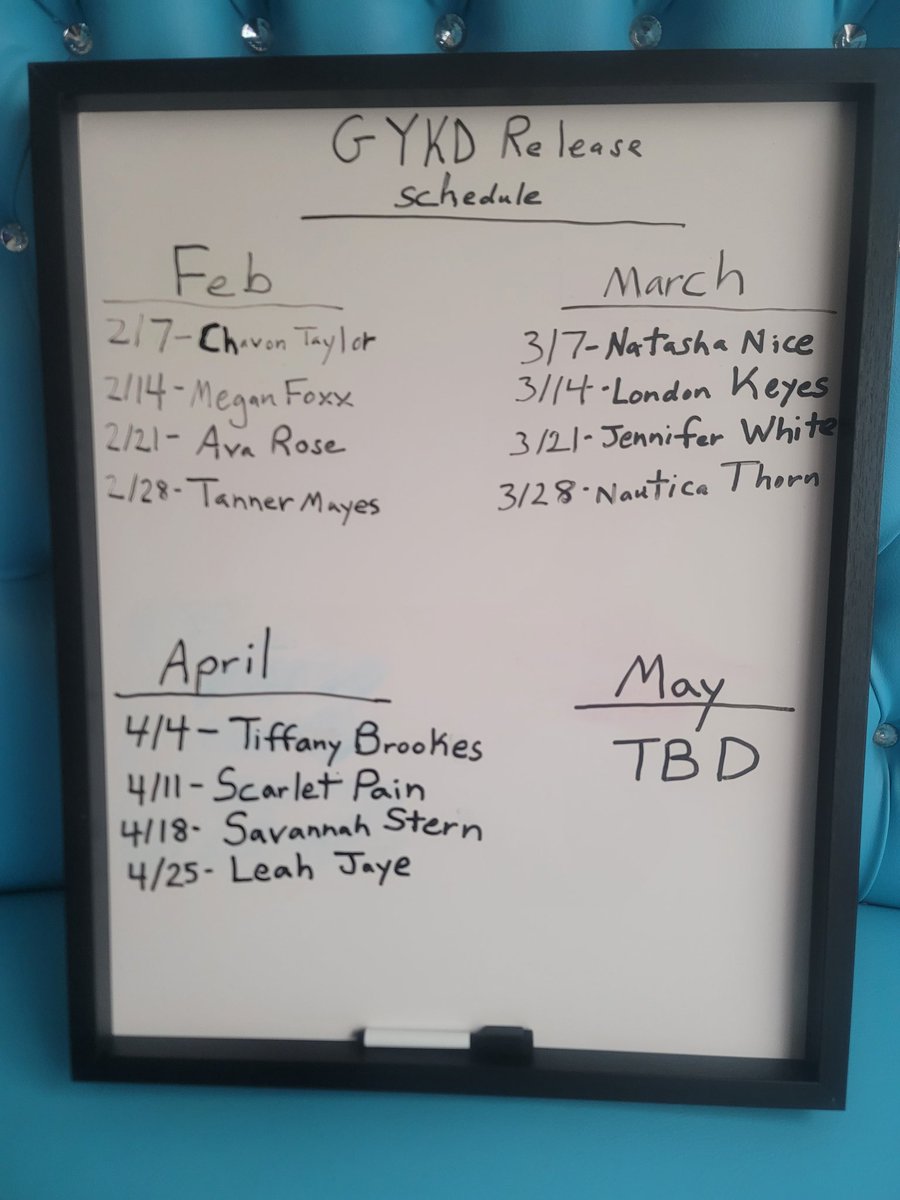 GYKD Release
schedule
Feb
2/7- Chavon Taylor
2/14- Megan Foxx
2/21- Ava Rose
2/28- Tanner Mayes
March
3/7- Natasha Nice
3/14- London Keyes
3/21- Jennifer White
3/28- Nautica Thorn
April
4/4- Tiffany Brookes
4/11- Scarlet Pain
4/18- Savannah Stern
4/25- Leah Jaye
May
TBD